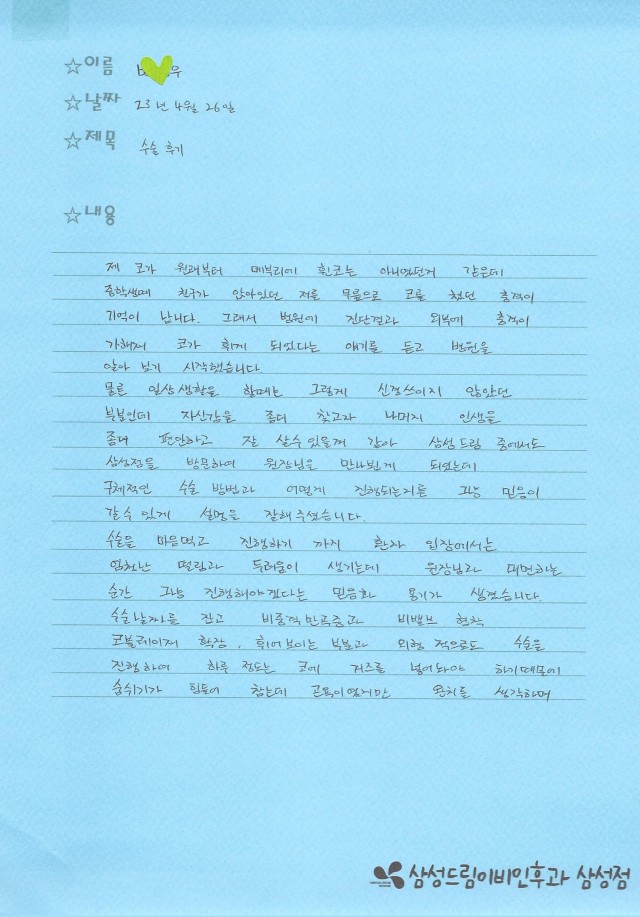 ☆이름 우
☆날짜 23년 4월 26일
☆제목 수술 후기
☆내용
제 코가 원래부터 메부리에 휜코는 아니였던거 같은데
중학생때 친구가 앉아있던 저를 무릎으로 코를 쳤던 충격이
기억이 납니다. 그래서 병원에 진단결과 외부에 충격이
가해져 코가 휘게 되었다는 얘기를 듣고 병원을
알아 보기 시작했습니다.
물론 일상생활을 할때는 그렇게 신경쓰이지 않았던
부분인데 자신감을 좀더 찾고자 나머지 인생을
좀더 편안하고 잘 살수있을꺼 같아 삼성드림 중에서도
삼성점을 방문하여 원장님을 만나뵙게 되었는데
구체적인 수술 방법과 어떻게 진행되는지를 그냥 믿음이
갈수 있게 설명을 잘해주셨습니다.
수술을 마음먹고 진행하기 까지 환자 입장에서는
엄청난 떨림과 두려움이 생기는데 원장님과 대면하는
순간 그냥 진행해야겠다는 믿음과 용기가 생겼습니다.
수술날짜를 잡고 비중격만곡증과 비밸브 협착
코블레이져 확장, 휘어보이는 부분과 외형적으로도 수술을
진행하여 하루 정도는 코에 거즈를 넣어놔야 하기때문에
숨쉬기가 힘들어 참는데 곤욕이였지만 완치를 생각하며
삼성드림이비인후과 삼성점